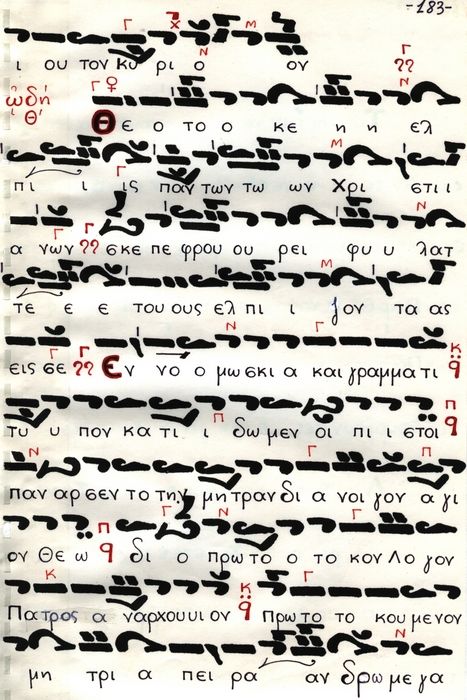 -183-
ι ου τον κυ ρι ο ον
ὠδή Θ' Θε ο το ο κε η η ελ
πι ι ις παν των τω ων Χρι στι ι
α νων σκε πε φρου ου ρει φυ υ λατ
τε ε ε του ους ελ πι ι ζον τα ας
εις σε Εν νο ο μω σκι α και γραμμα τι
τυ υ πον κα τι ι δω μεν οι πι ι στοι
παν αρ σεν το την μη τραν δι α νοι γον α γι
ον Θε ω δι ο πρω το ο το κον Λο γον
Πα τρος α ναρχου υι ον πρω το το κου μενον
μη τρι α πει ρα αν δρω με γα